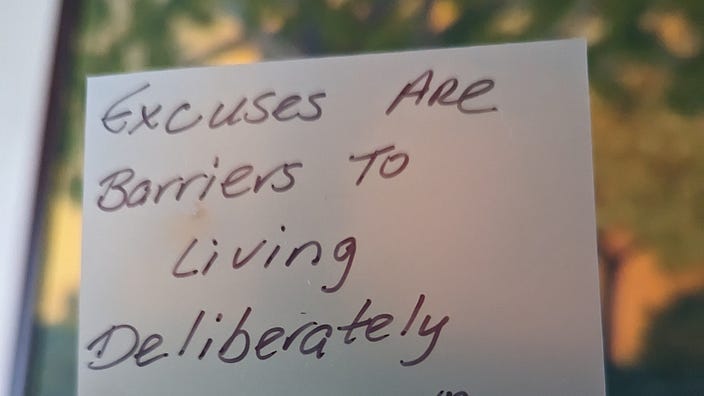 Excuses ARe
Barriers To
Living
Deliberately